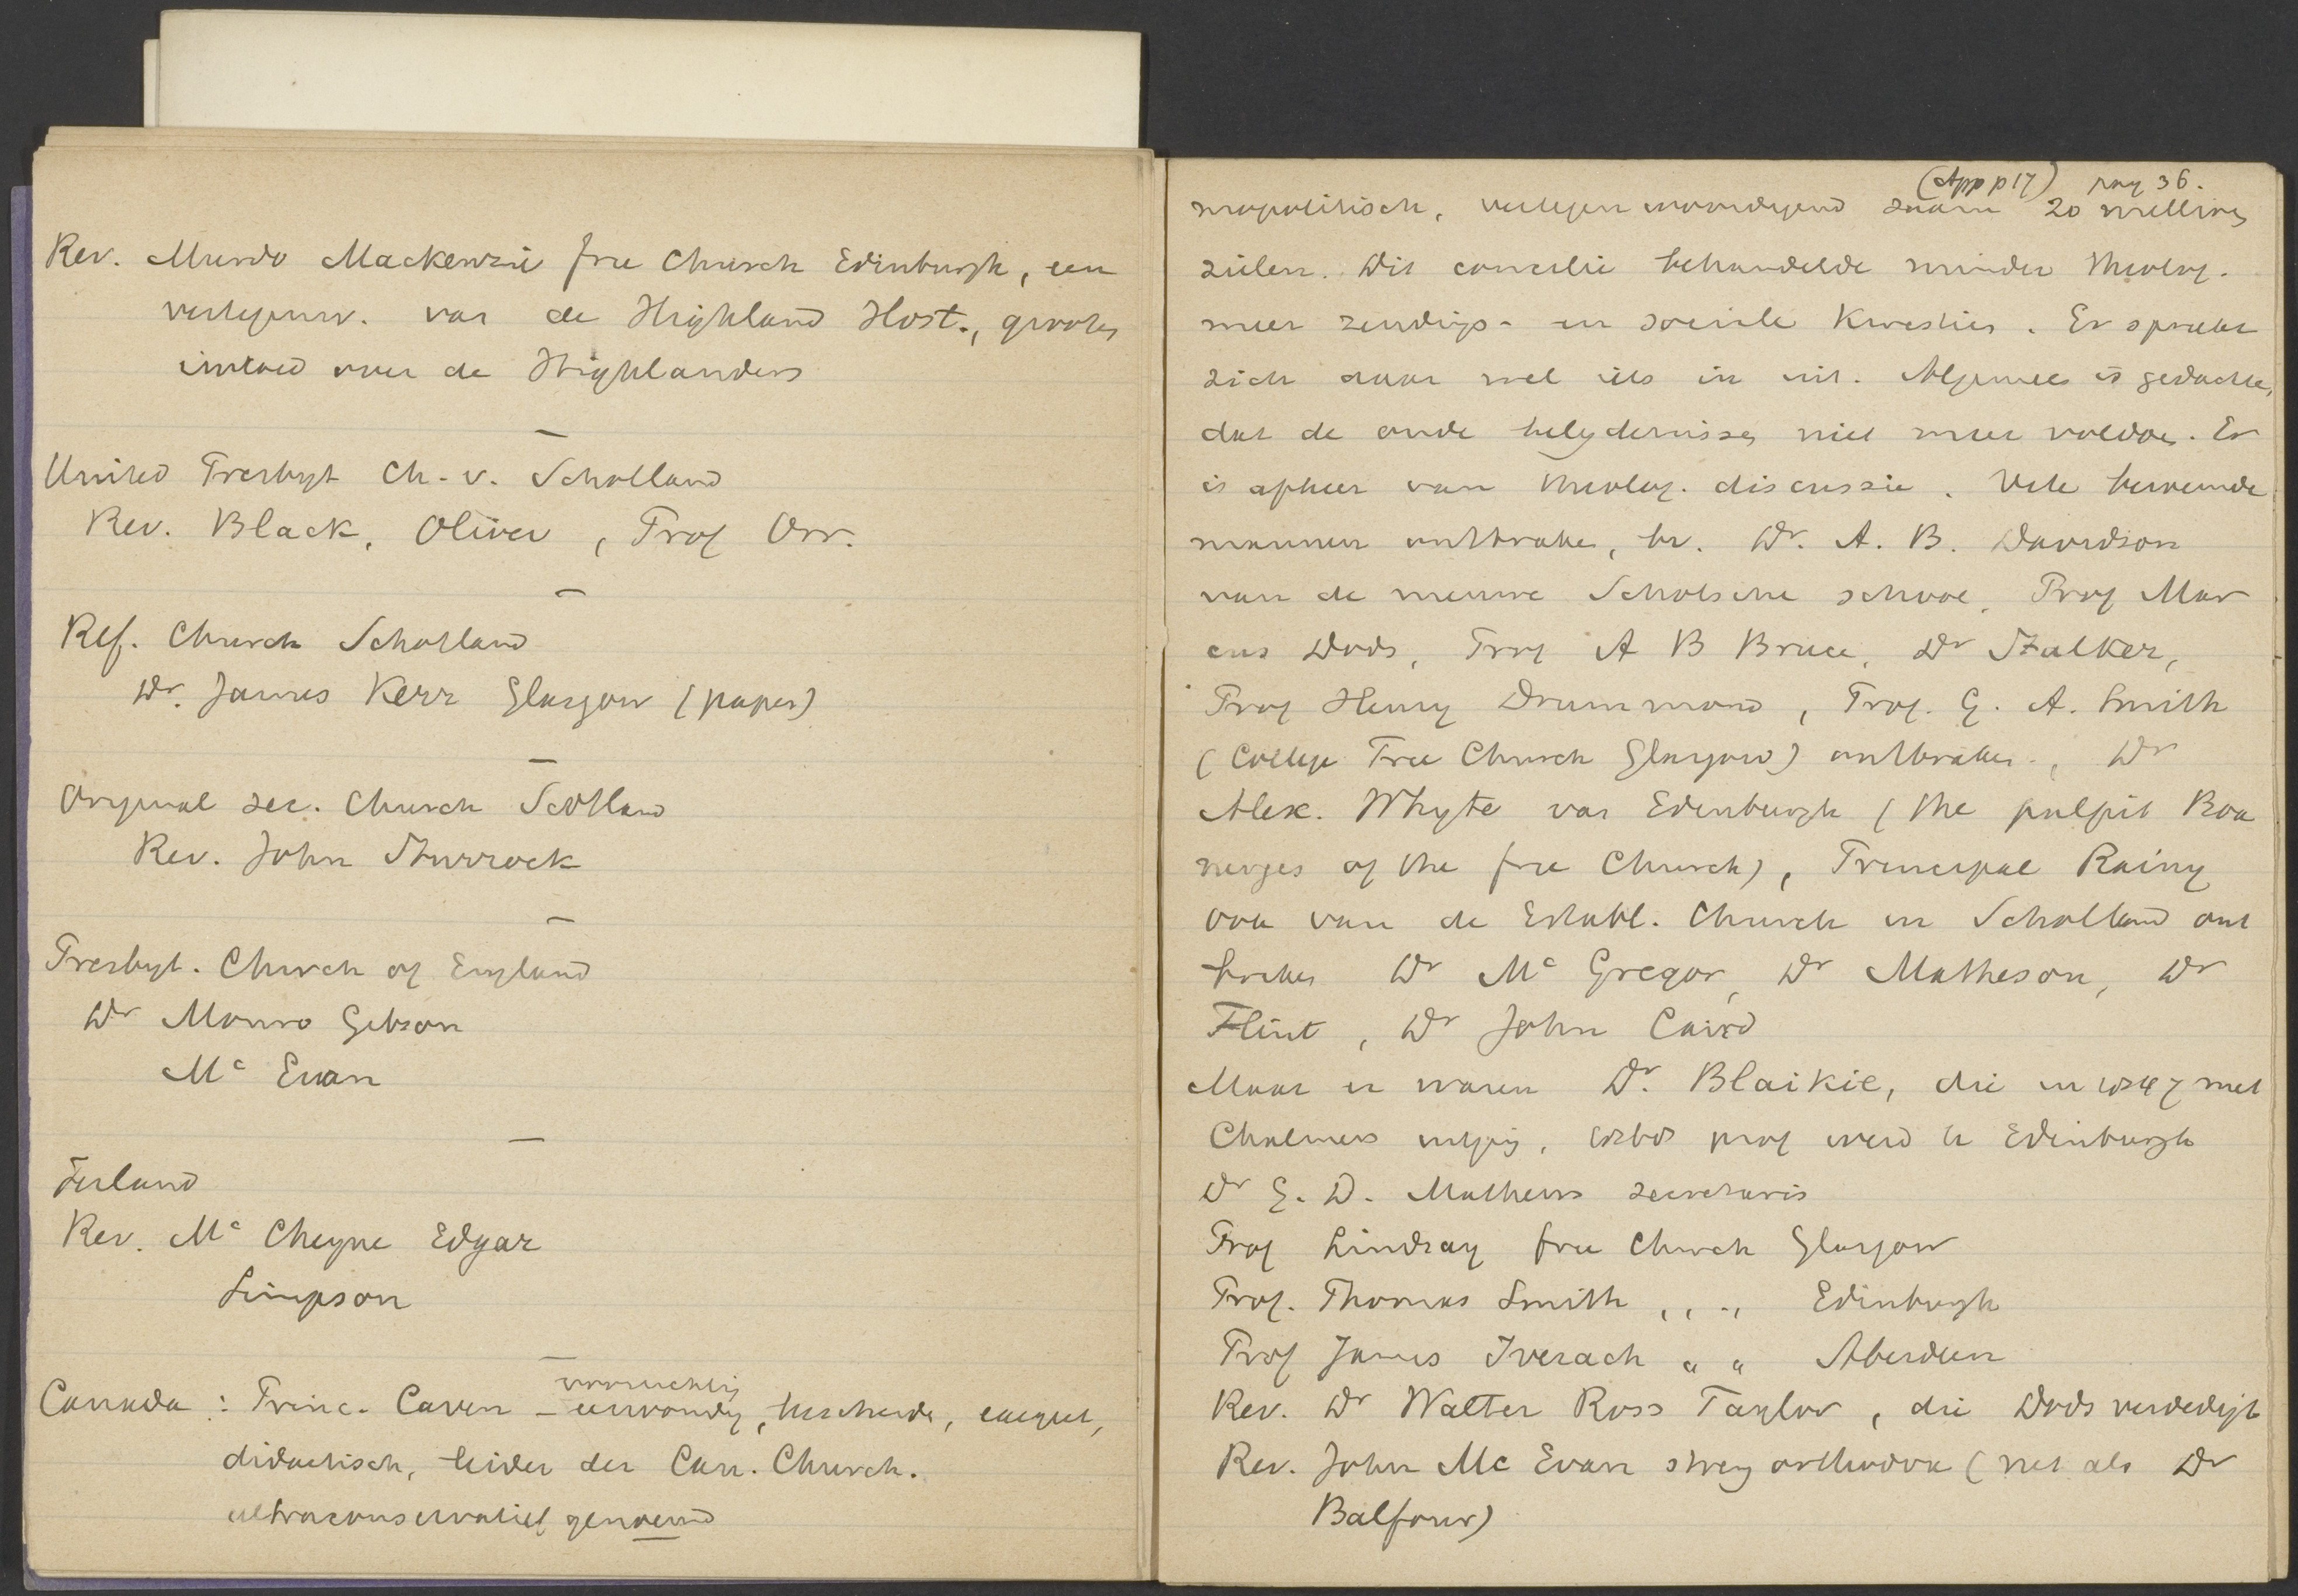 Rev. Murdo Mackenzie free Church Edinburgh, een
vertegenw. van de Highland Host., grooten
invloed over de Highlanders
United Presbyt Ch. v. Schotland
Rev. Black, Oliver, Prof Orr.
Ref. Church Schotland
Dr. James Kerr Glasgow (paper)
Original sec. Church Scotland
Rev. John Sturrock
Presbyt. Church of England
Dr Monro Gibson
Mc Ewan
Ierland
Rev. Mc Cheyne Edgar
Simpson
voorzichtig
Canada : Princ. Caven – eenvoudig, bescheiden, exegeet,
didactisch, leider der Can. Church.
ultraconservatief genoemd
(App p 17) pag 36.
mopolitisch, vertegenwoordigend 20 millioen
zielen. Dit concilie behandelde minder theolog.
meer zendings- en sociale kwesties. Er spreekt
zich daar wel iets in uit. Algemeen is gedachte,
dat de oude belijdenissen niet meer voldoen. Er
is afkeer van theolog. discussie. Vele beroemde
mannen ontbraken, bv. Dr. A. B. Davidson
van de nieuwe Schotsche school, Prof Mar
cus Dods, Prof A B Bruce, Dr Stalker,
Prof Henry Drummond, Prof. G. A. Smith
(College Free Church Glasgow) ontbraken., Dr
Alex. Whyte van Edenburgh (the pulpit Boa
nerges of the free Church), Principal Rainy
ook van de Establ. Church in Schotland ont
braken Dr Mc Gregor, Dr Matheson, Dr
Flint, Dr John Caird
Maar er waren Dr. Blaikie, die in met
Chalmers uitging, prof werd te Edinburgh
Dr G. D. Mathews secretaris
Prof Lindsay free Church Glasgow
Prof. Thomas Smith ,, ,, Edinburgh
Prof James Iverach " " Aberdeen
Rev. Dr Walter Ross Taylor, die Dods verdedigt
Rev. John Mc Ewan streng orthodox (net als Dr
Balfour)